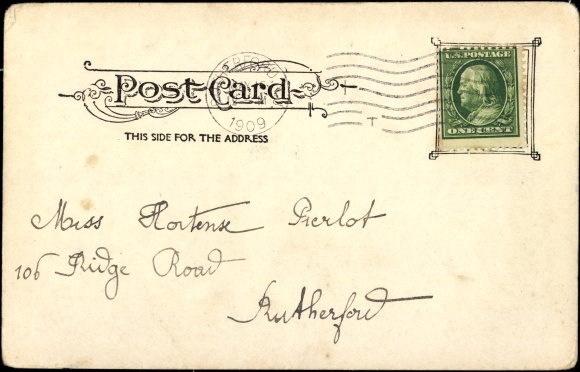 Post Card
1909
T
THIS SIDE FOR THE ADDRESS
U.S. POSTAGE
ONE CENT
Miss Hortense Pierlot
106 Ridge Road
Rutherford